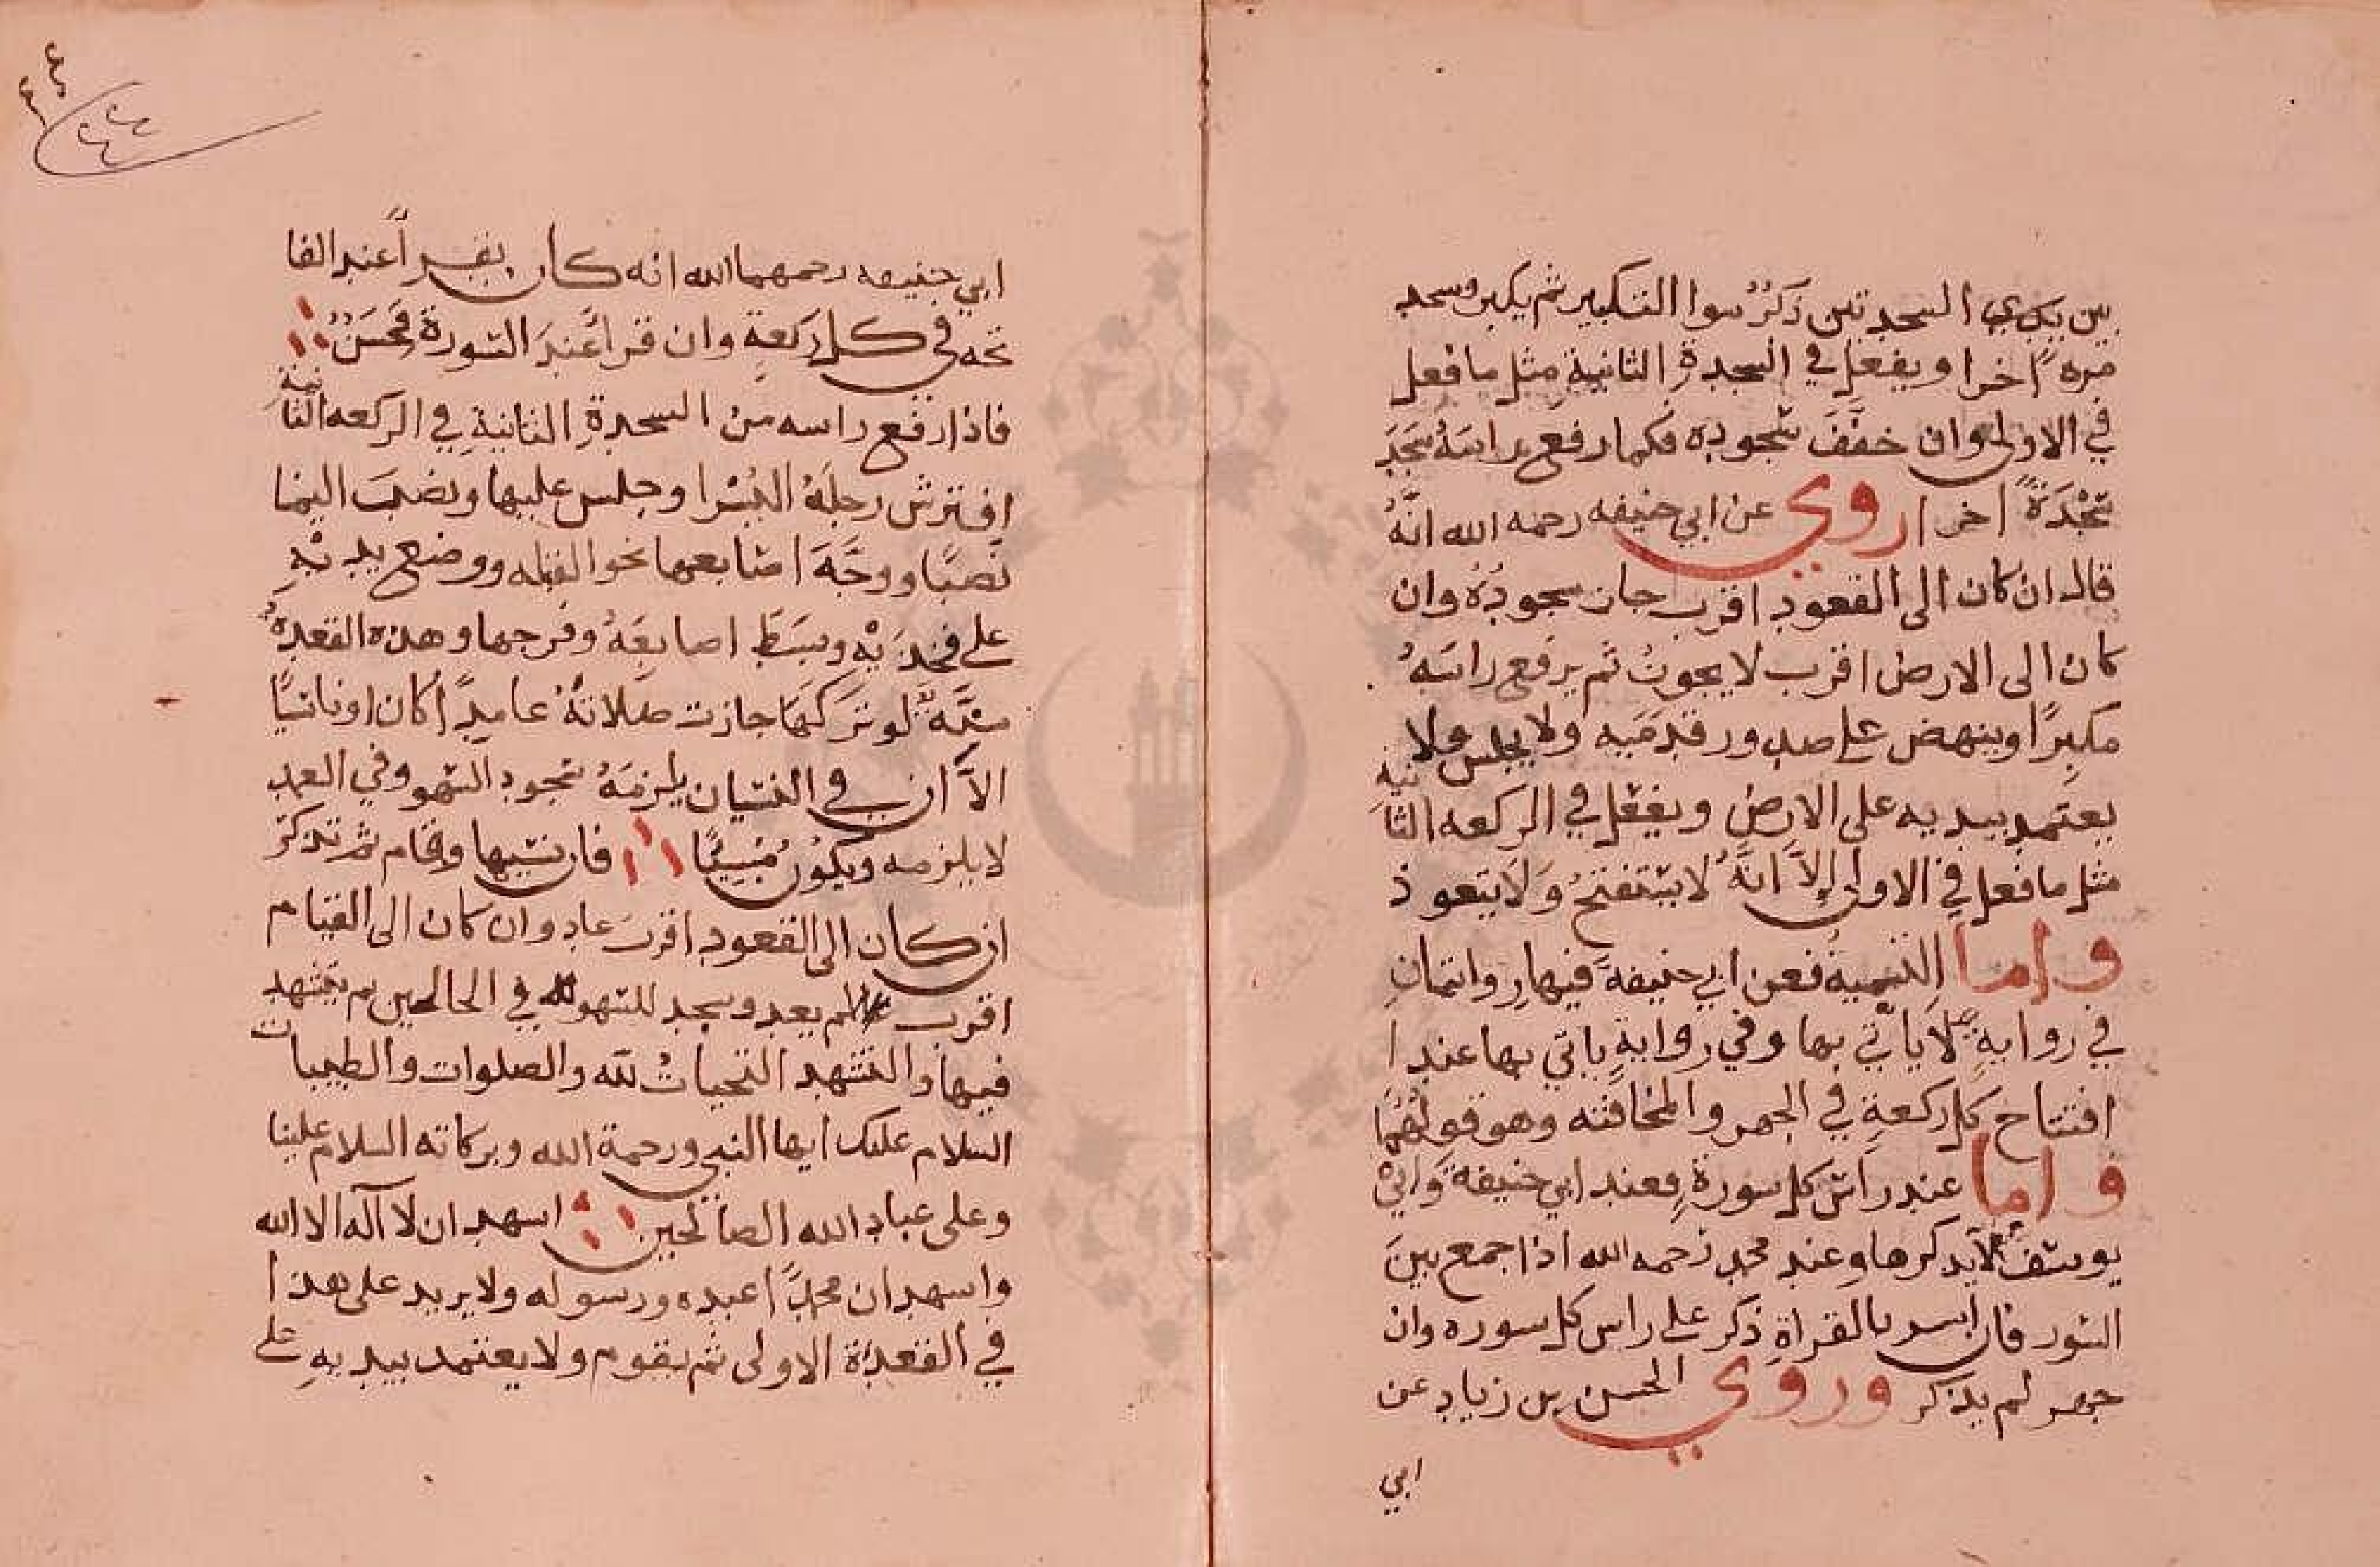 بين يدي السجدتين ذكرٌ سوا التكبير ثم يكبر ويسجد
مرةً اخرا ويفعل في السجدةِ الثانيةِ مثل ما فعل
في الاولى وان خفَّفَ سُجوده فكما رفع راسَهُ سَجَدَ
سَجْدَةً اخرا روي عن ابي حنيفه رحمه الله انَّهُ
قال ان كان الى القعود اقرب جاز سجودُهُ وان
كان الى الارض اقرب لا يجوزُ ثم يرفع راسَهُ
مكبِرًا وينهض على صدور قدمَيه ولا يجلس ولا
يعتمد بيديه على الارض ويفعل في الركعه الثانيهِ
مثل ما فعل في الاولى إلاَّ انَّهُ لا يستفتحُ وَلَا يتعوذ
واما التسميةُ فعن ابي حنيفةَ فيها روايتانِ
في روايهٍ لا ياتي بها وفي روايةٍ ياتي بها عند ا
افتتاح كل ركعةٍ في الجهر والمخافته وهو قولُهُمَا
واما عند راس كل سورةٍ فعند ابي حنيفةَ وَابي
يوسفَ لا يذكرها وعند محمد رحمه الله اذا جمع بينَ
السور فان اسر بالقراةِ ذكر على راس كل سوره وان
جهر لم يذكر وروي الحسن بن زياد عن
ابي
ابي حنيفه رحمهما الله انه كان يقرأ عند الفا
تحه في كل ركعةٍ وان قرأ عندَ السورة فحَسَنٌ
فاذا رفع راسه من السجدةِ الثانيةِ في الركعه الثانيةِ
افترش رجلَهُ اليُسْرا وجلس عليها ونصبَ اليمنا
نَصبًا ووجَّهَ اصابعها نحو القبله ووضع يديْهِ
على فخذَيْهِ وبسَطَ اصابعَهُ وفرجها وهذه القعدةُ
سنَّةٌ لو تَركَهَا جازت صلاتهُ عامدًا كان او ناسيًا
الاَّ ان في النسيان يلزمَهُ سجود السهو وفي العمد
لا يلزمه ويكُونُ مُسِيئًا فان نسيها وقام ثم تذكر
ان كان الى القعود اقربَ عاد وان كان الى القيام
اقرب لم يعد وسجد للسهو في الحالين ثم يتشهد
فيها والتشهد التحياتُ لله والصلوات والطيبات
السلام عليك ايها النبي ورحمة الله وبركاته السلام علينا
وعلى عباد الله الصالحين اسهد ان لا اله الا الله
واسهد ان محمدًا عبده ورسوله ولا يزيد على هذا
في القعدة الاولى ثم يقوم ولا يعتمد بيديهِ على